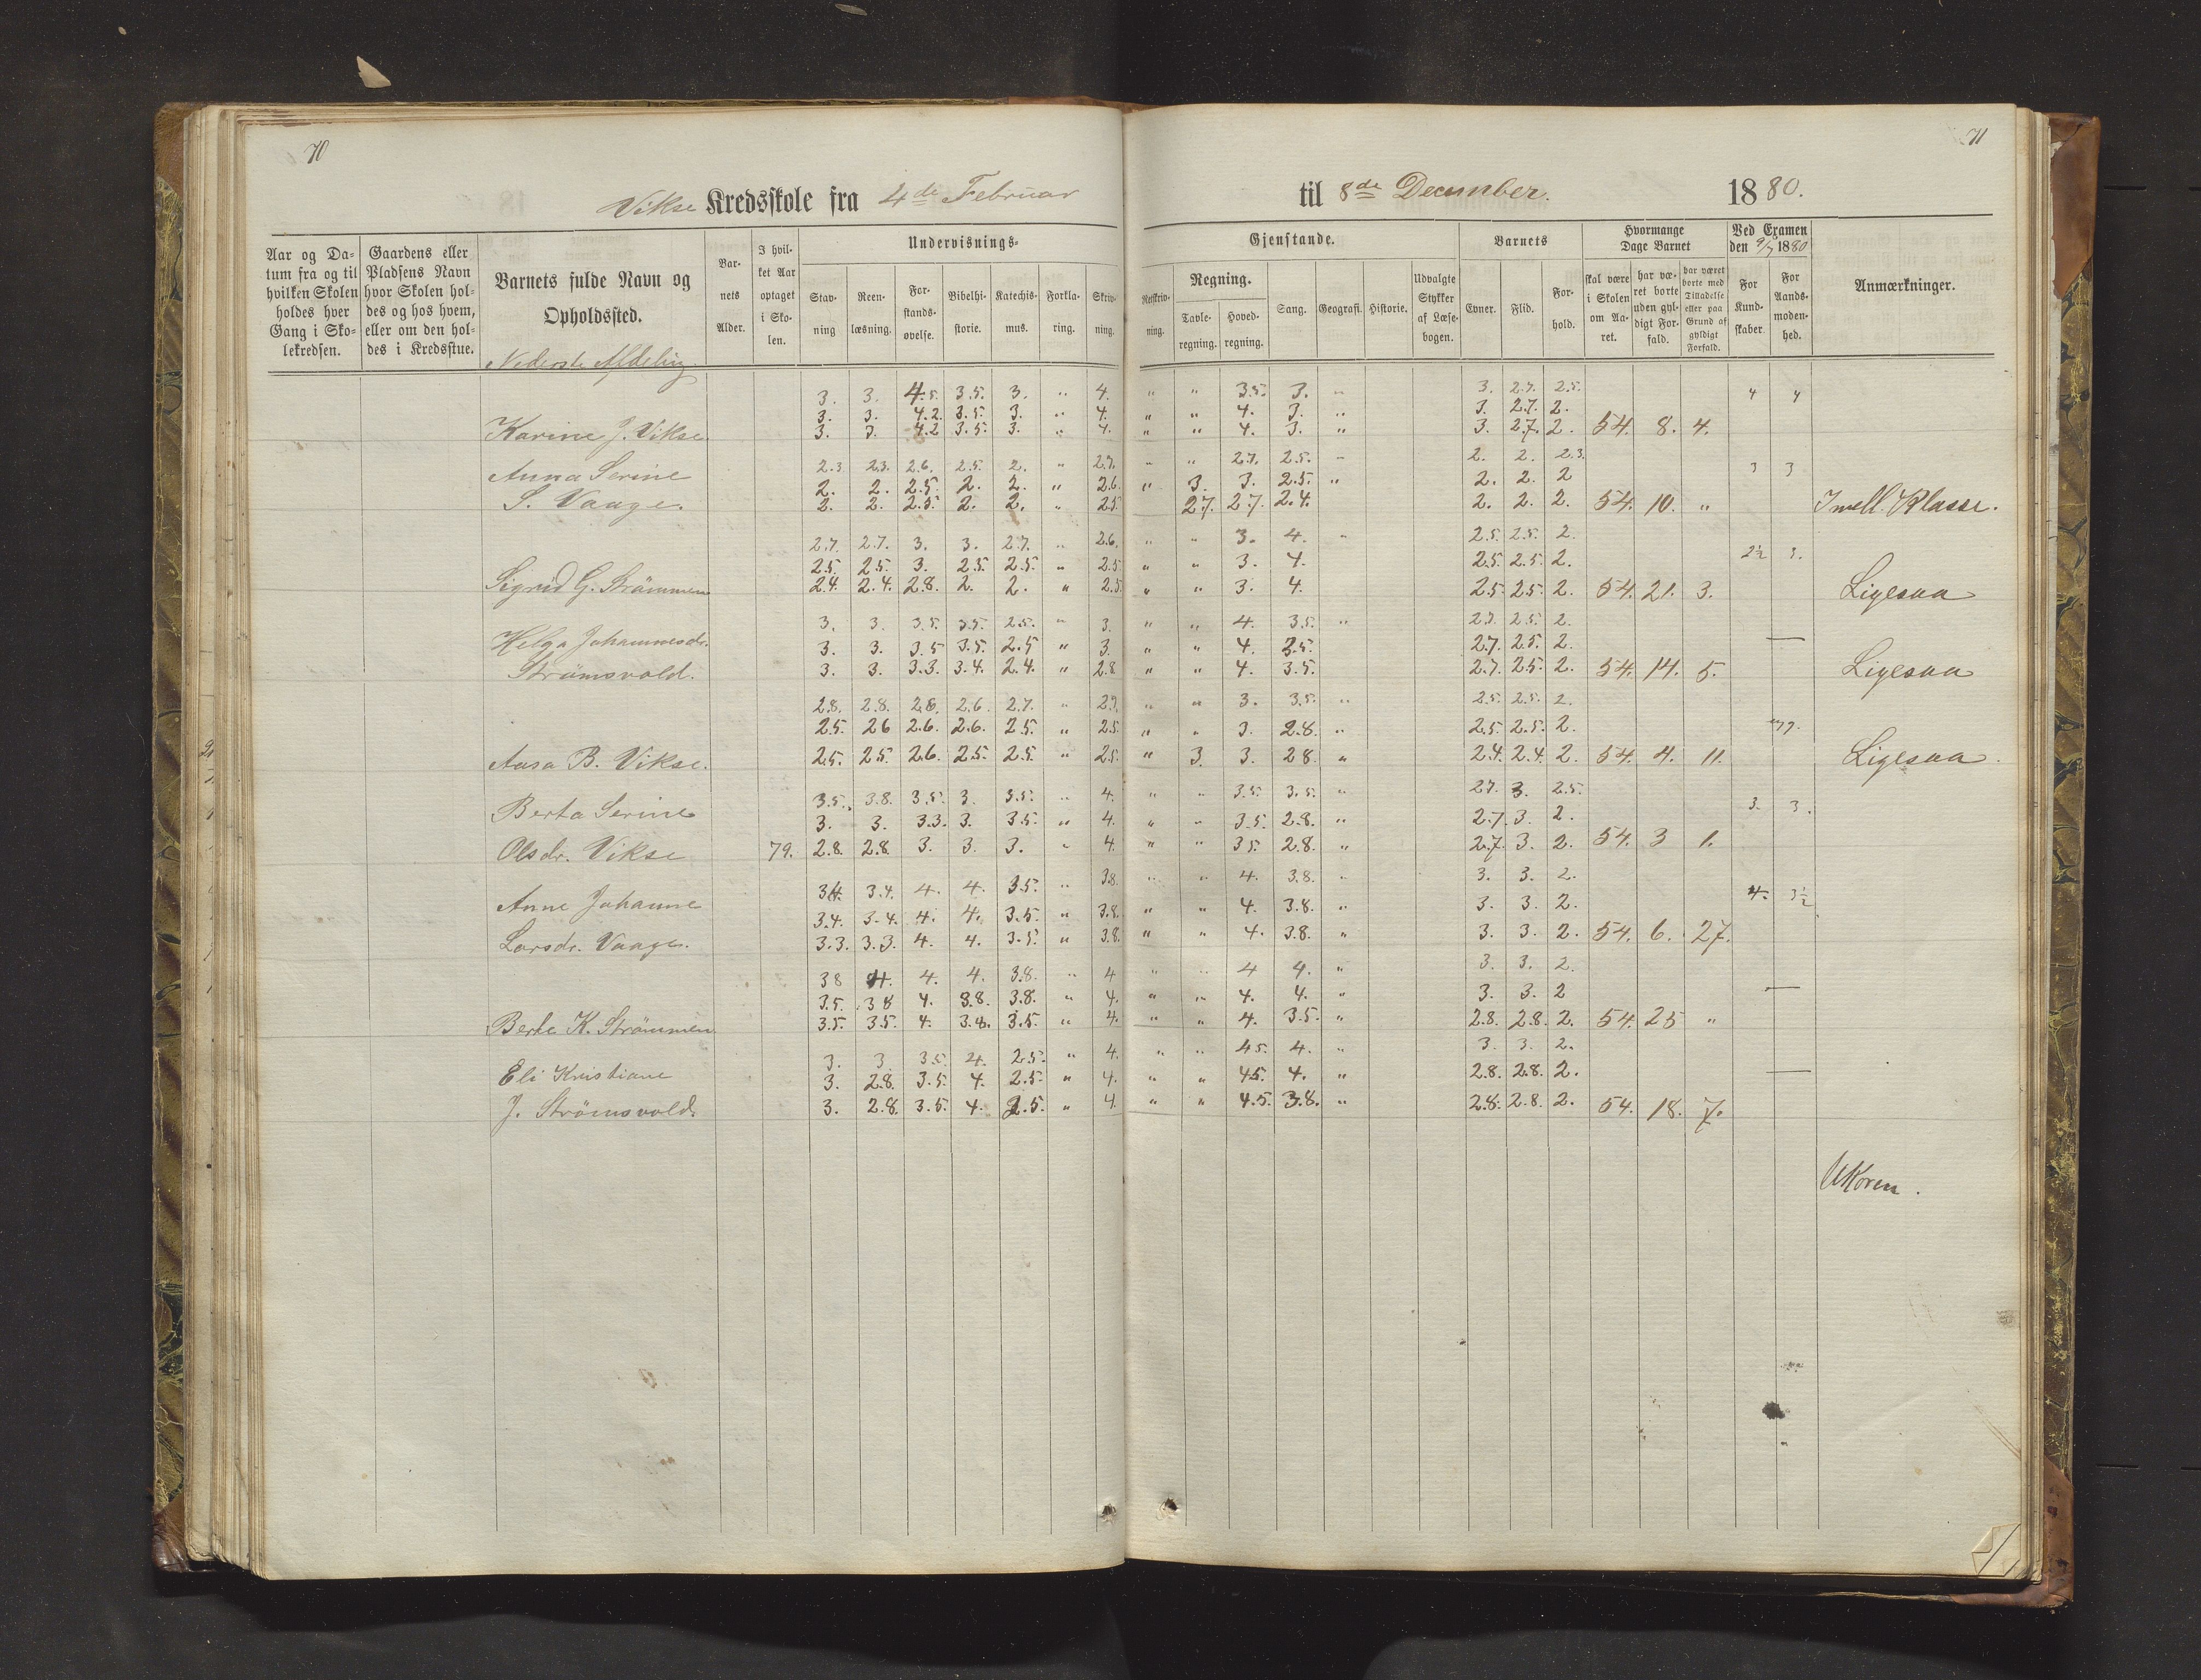 70
71
Vikse Kredsskole fra 4de Februar til 8de December. 1880.
Aar og Datum fra og til hvilken Skolen holdes hver Gang i Skolekredsen.
Gaardens eller Pladsens Navn hvor Skolen holdes og hos hvem, eller om den holdes i Kredsstue.
Barnets fulde Navn og Opholdssted.
Barnets Alder.
I hvilket Aar optaget i Skolen.
Undervisnings-Gjenstande.
Stavning
Reenlæsning.
Forstandsøvelse.
Bibelhistorie.
Katechismus.
Forklaring.
Skrivning.
Retskrivning.
Regning.
Tavleregning.
Hovedregning.
Sang.
Geografi.
Historie.
Udvalgte Stykker af Læsebogen.
Barnets
Evner.
Flid.
Forhold.
Hvormange Dage Barnet
skal være i Skolen om Aaret.
har været borte uden gyldigt Forfald.
har været borte med Tilladelse eller paa Grund af gyldigt Forfald.
Ved Examen den 9/7 1880
For Kundskaber.
For Aandsmodenhed.
Anmærkninger.
Nederste Afdeling
3. 3. 4.5. 3.5. 3. " 4. " " 3.5. 3. " 3. 2.7. 2.5. 4 4
3. 3. 4.2. 3.5. 3. " 4. " " 4. 3. " 3. 2.7. 2.
Karine J. Vikse. 3. 3. 4.2 3.5. 3. " 4. " " 4. 3. " 3. 2.7. 2. 54. 8. 4.
2.3 2.3. 2.6. 2.5. 2. " 2.7. " " 2.7. 2.5. " 2. 2. 2.3. 3 3
Anna Serine 2. 2. 2.5. 2. 2. " 2.6. " 3. 3. 2.5. " 2. 2. 2
S. Vaage. 2. 2. 2.5. 2. 2. " 2.5. 2.7. 2.7. 2.4. 2. 2. 2. 54. 10. " I mell. Klasse.
2.7. 2.7. 3. 3. 2.7. " 2.6. " " 3. 4. " 2.5. 2.5. 2.
2.5. 2.5. 3. 2.5. 2.5. " 2.5 " " 3. 4. 2.5. 2.5. 2. 2½ 3.
Sigrid G. Strømmen 2.4. 2.4. 2.8. 2. 2. " 2.5. " " 3. 4. 2.5. 2.5. 2. 54. 21. 3. Ligesaa
3. 3. 3.5. 3.5. 2.5. " 3. " " 4. 3.5. " 2.7. 2.5. 2.
Helga Johannesdr. 3. 3. 3.5 3.5. 2.5 " 3. " " 4. 3.5. 2.7. 2.5. 2. —
Strømsvold. 3. 3. 3.3. 3.4. 2.4. " 2.8. " " 4. 3.5. 2.7. 2.5. 2. 54. 14. 5. Ligesaa
2.8. 2.8. 2.8. 2.6. 2.7. " 2.7. " " 3. 3.5. " 2.5. 2.5. 2.
2.5. 2.6 2.6. 2.6. 2.5. " 2.5. " " 3. 2.8. " 2.5. 2.5. 2.
Aasa B. Vikse. 2.5. 2.5. 2.6. 2.5. 2.5. " 2.5. " 3. 3. 2.8. " 2.4. 2.4. 2. 54. 4. 11. Ligesaa.
3.5. 3.8. 3.5. 3. 3.5. " 4. " " 3.5. 3.5. " 2.7. 3. 2.5.
Berta Serine 3. 3. 3.3. 3. 3.5. " 4. " " 3.5. 2.8. " 2.7. 3. 2. 3. 3.
Olsdr. Vikse 79. 2.8. 2.8. 3. 3. 3. " 4. " " 3.5. 2.8. " 2.7. 3. 2. 54. 3 1.
3.4. 3.4. 4. 4. 3.5. " 3.8. " " 4. 3.8. " 3. 3. 2.
Anne Johanne 3.4. 3.4. 4. 4. 3.5. " 3.8. " " 4. 3.8. " 3. 3. 2. 4. 3½
Larsdr. Vaage. 3.3. 3.3. 4. 4. 3.5. " 3.8. " " 4. 3.8. " 3. 3. 2. 54. 6. 27.
3.8 4. 4. 4. 3.8. " 4 " " 4 4. " 3. 3. 2.
3.5. 3.8 4. 3.8. 3.8. " 4. " " 4. 4. " 3. 3. 2 —
Berte K. Strømmen 3.5. 3.5. 4. 3.8. 3.5. " 4. " " 4. 3.5. " 2.8. 2.8. 2. 54. 25 "
3. 3. 3.5 4. 2.5. " 4. " " 4.5. 4. " 3. 3. 2.
Eli Kristiane 3. 2.8. 3.5. 4. 2.5. " 4. " " 4.5. 4. " 2.8. 2.8. 2. —
J. Strømsvold. 3. 2.8. 3.5. 4. 2.5. " 4. " " 4.5. 3.8. " 2.8. 2.8. 2. 54. 18. 7.
UKoren.